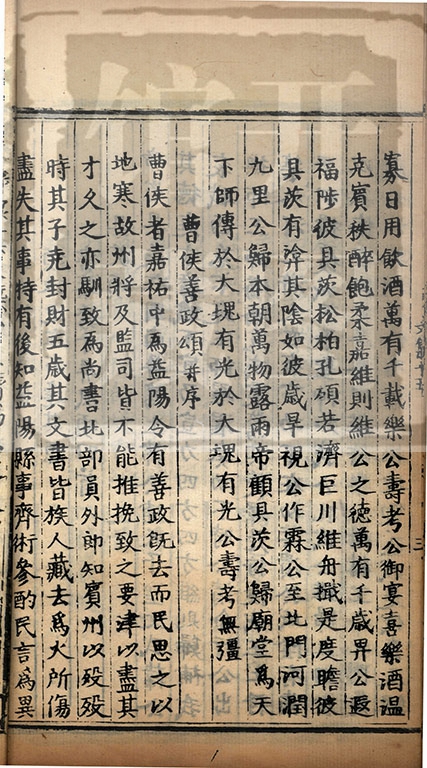 寡日用飲酒萬有千載樂公壽考公御宴喜樂酒温
克賓秩醉飽柔嘉維則維公之德萬有千歲昇公遐
福陟彼具茨松柏孔碩若濟巨川維舟檝是度瞻彼
具茨有渰其陰如彼歲旱視公作霖公至北門河潤
九里公歸本朝萬物露雨帝顧具茨公歸廟堂爲天
下師傅於大塊有光於大塊有光公壽考無彊
曹侠善政頌并序
曹侠者嘉祐中爲益陽令有善政旣去而民思之以
地寒故州將及監司皆不能推挽致之要津以盡其
才久之亦馴致爲尚書比部員外郎知賓州以殁殁
時其子尭封財五歲其文書皆族人藏去爲火所傷
盡失其事特有後知益陽縣事齊術參酌民言爲異
三